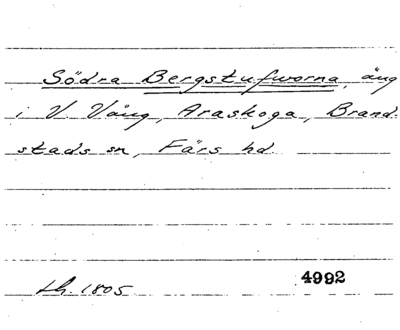 Södra Bergstufworna, äng
i V. Vång, Araskoga, Brand-
stads sn, Färs hd.
Lh. 1805 4992